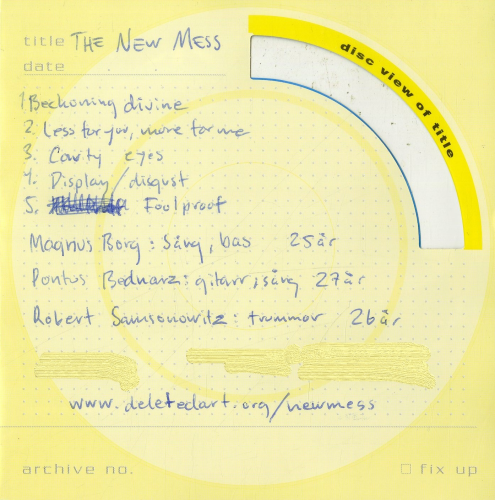 title THE NEW MESS
date
disc view of title
1 Beckoning divine
2. Less for you, more for me
3. Cavity eyes
4. Display/disgust
5. Foolproof
Magnus Borg: Sång, bas 25 år
Pontus Bednarz: gitarr, sång 27 år
Robert Samsonowitz: trummor 26 år
www.deletedart.org/newmess
archive no. fix up